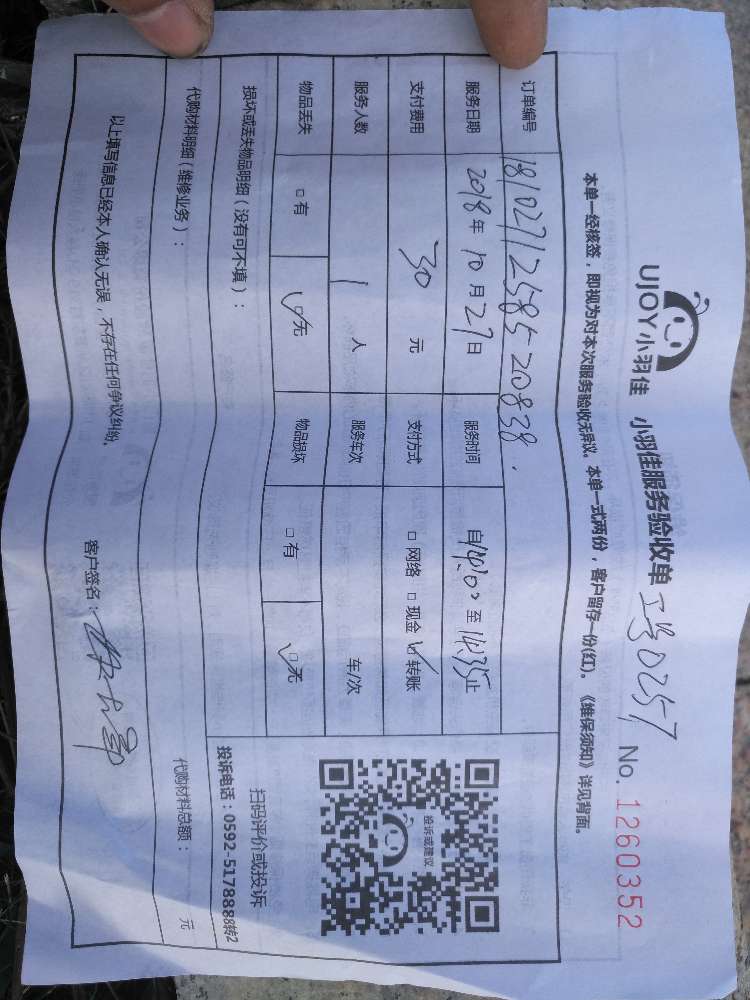 UJOY小羽佳 小羽佳服务验收单 工号0257 No. 1260352
本单一经核签，即视为对本次服务验收无异议。本单一式两份，客户留存一份(红)。《维保须知》详见背面。
订单编号 1810271258520838.
服务日期 2018年10月27日 服务时间 自14:00至14:35止
支付费用 30 元 支付方式 □网络 □现金 ☑转账
服务人数 1 人 服务车次 车/次
物品丢失 □有 ☑无 物品损坏 □有 ☑无
损坏或丢失物品明细（没有可不填）：
投诉或建议
扫码评价或投诉
投诉电话：0592-5178888转2
代购材料明细（维修业务）： 代购材料总额： 元
以上填写信息已经本人确认无误，不存在任何争议纠纷。
客户签名：